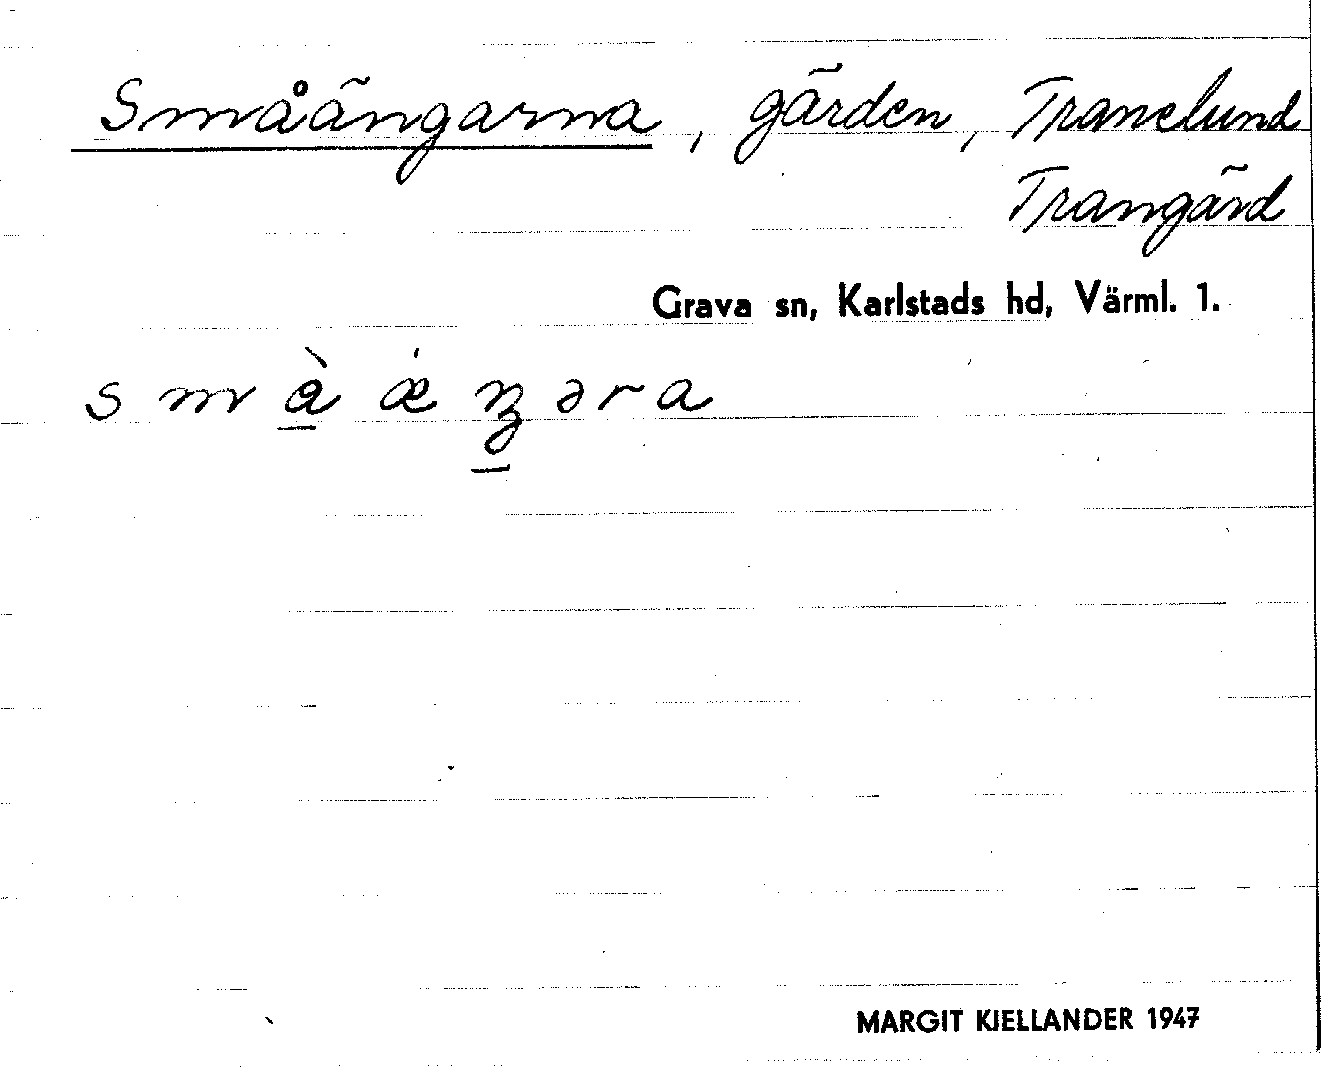 Småängarna, gärden, Tranelund
Trangärd
Grava sn, Karlstads hd, Värml. 1.
s m å̀ ǽ ŋ ə r a
MARGIT KJELLANDER 1947